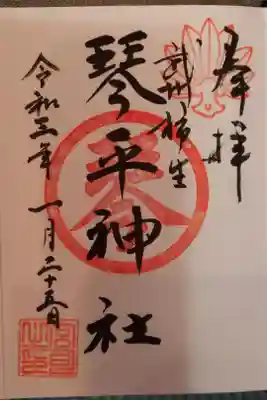 奉拝
武州柿生
琴平神社
令和三年 一月二十五日